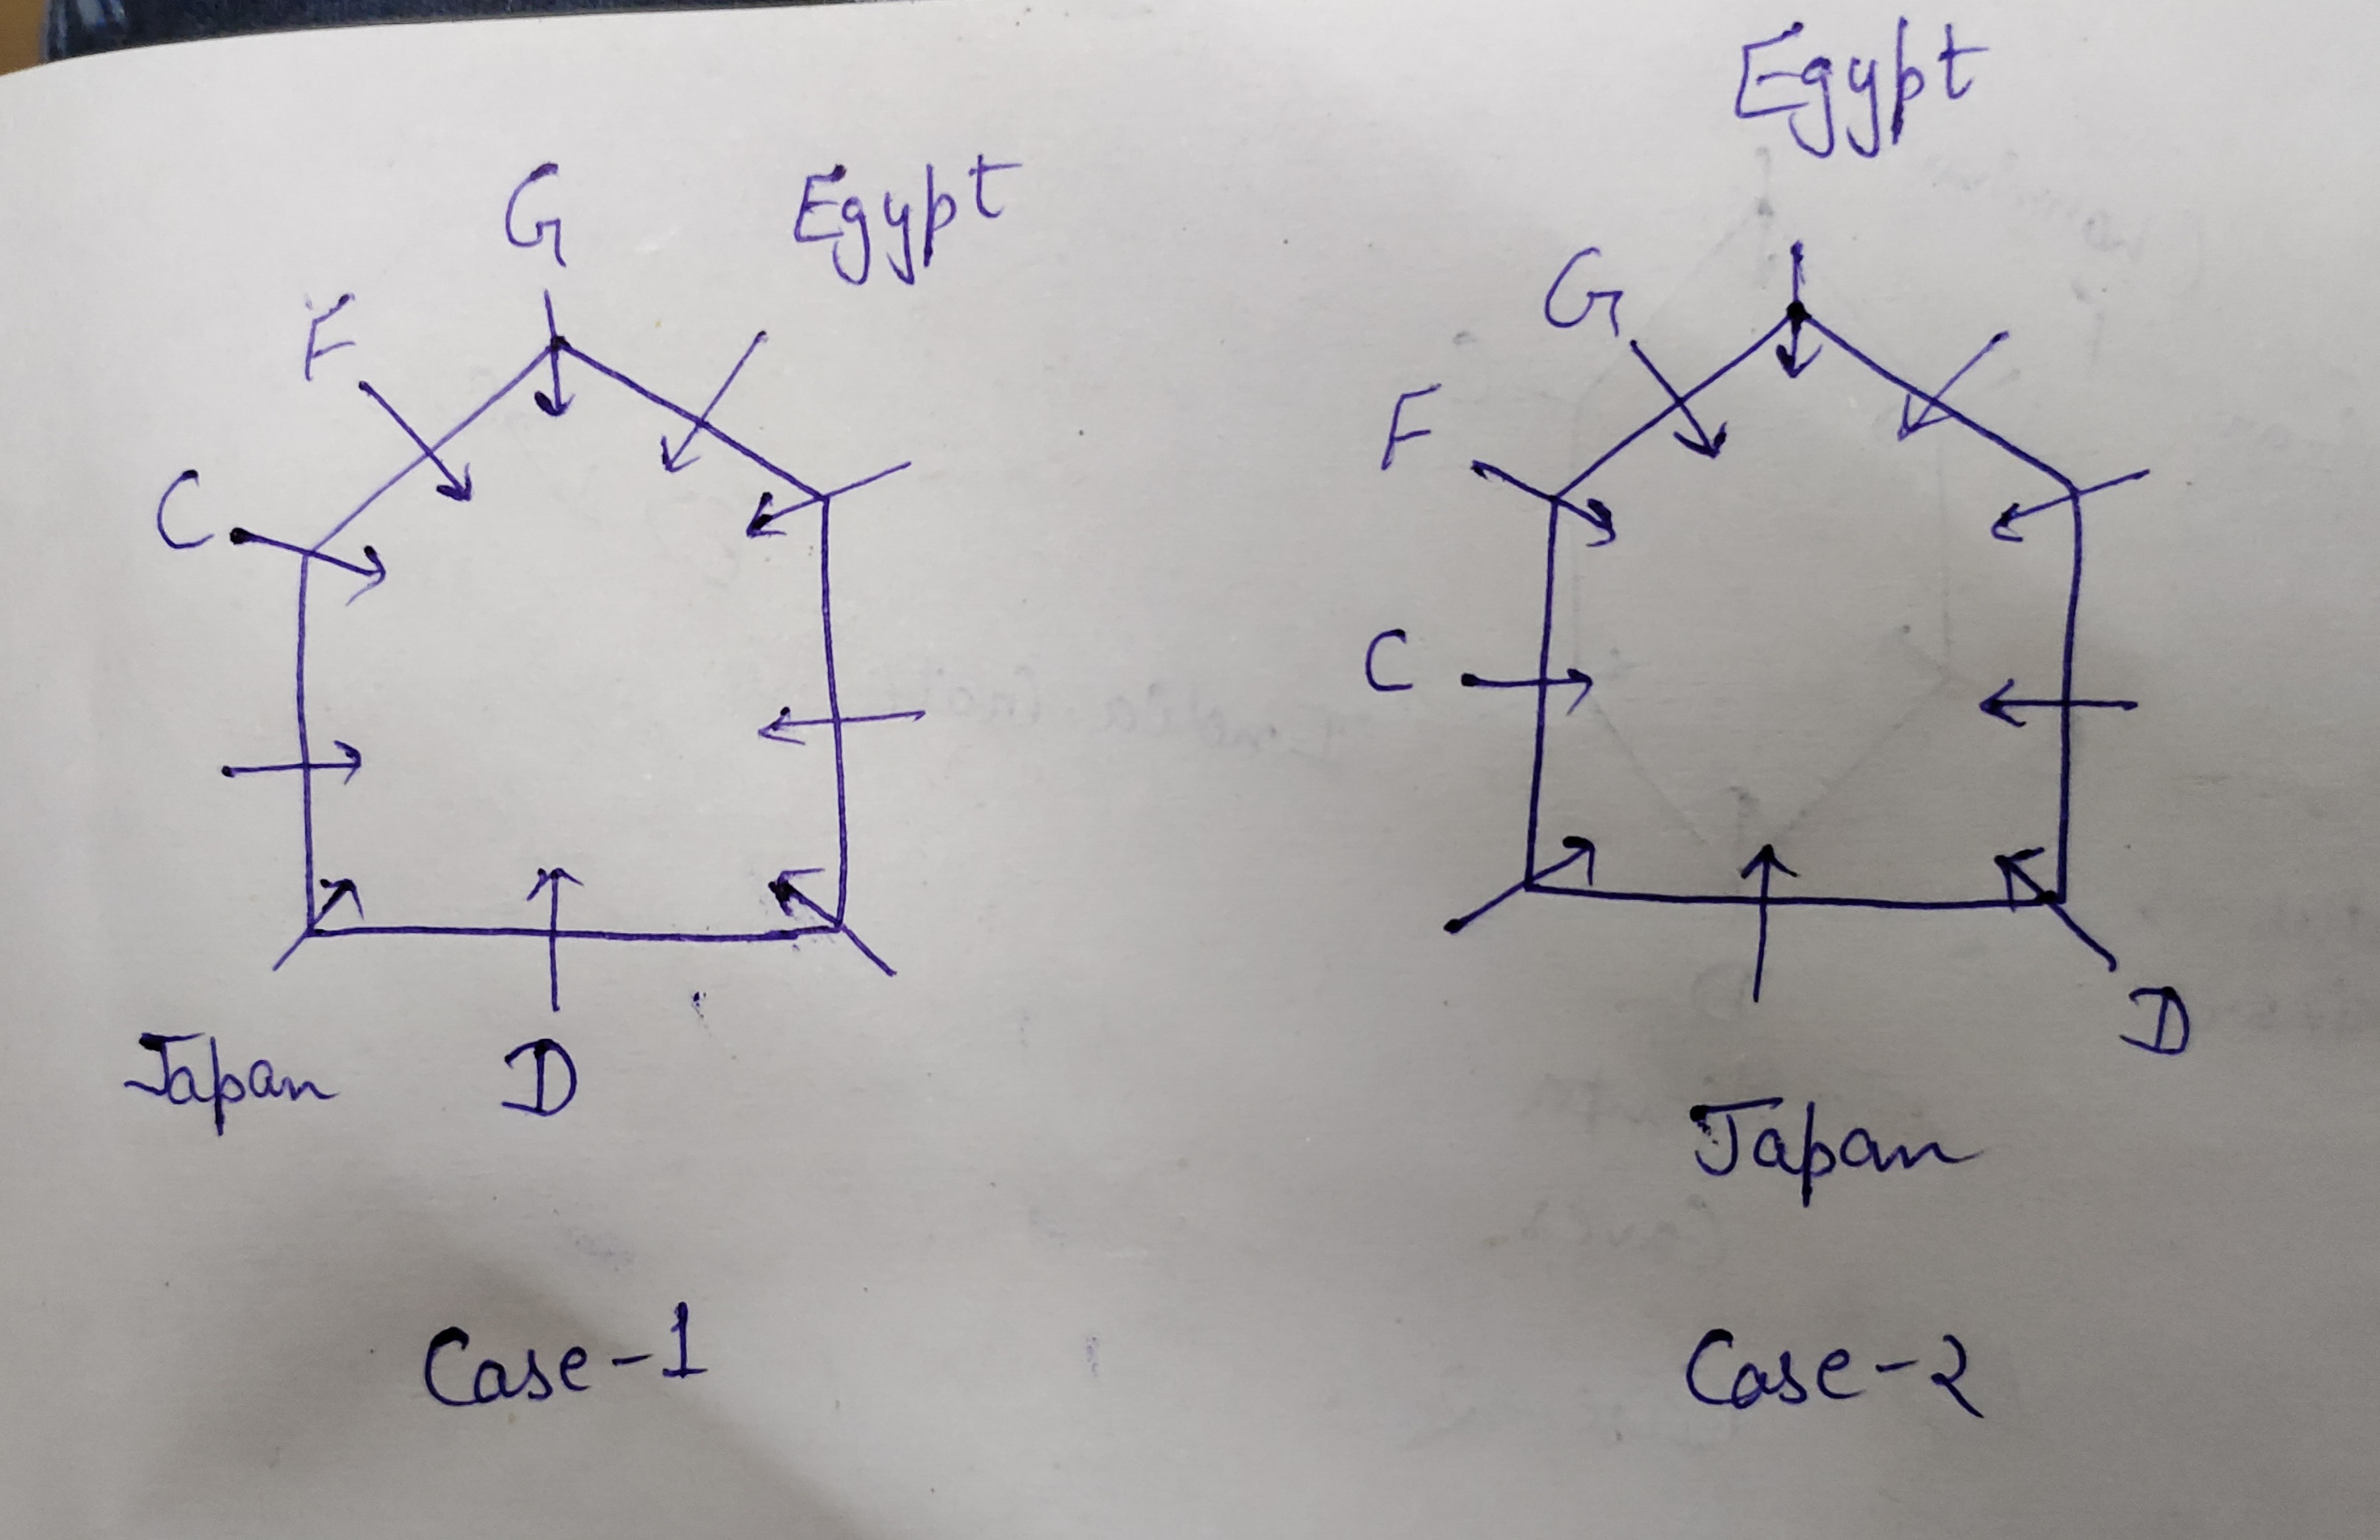 Egypt
G Egypt
G
F
F
C
C
Japan D
D
Japan
Case-1 Case-2